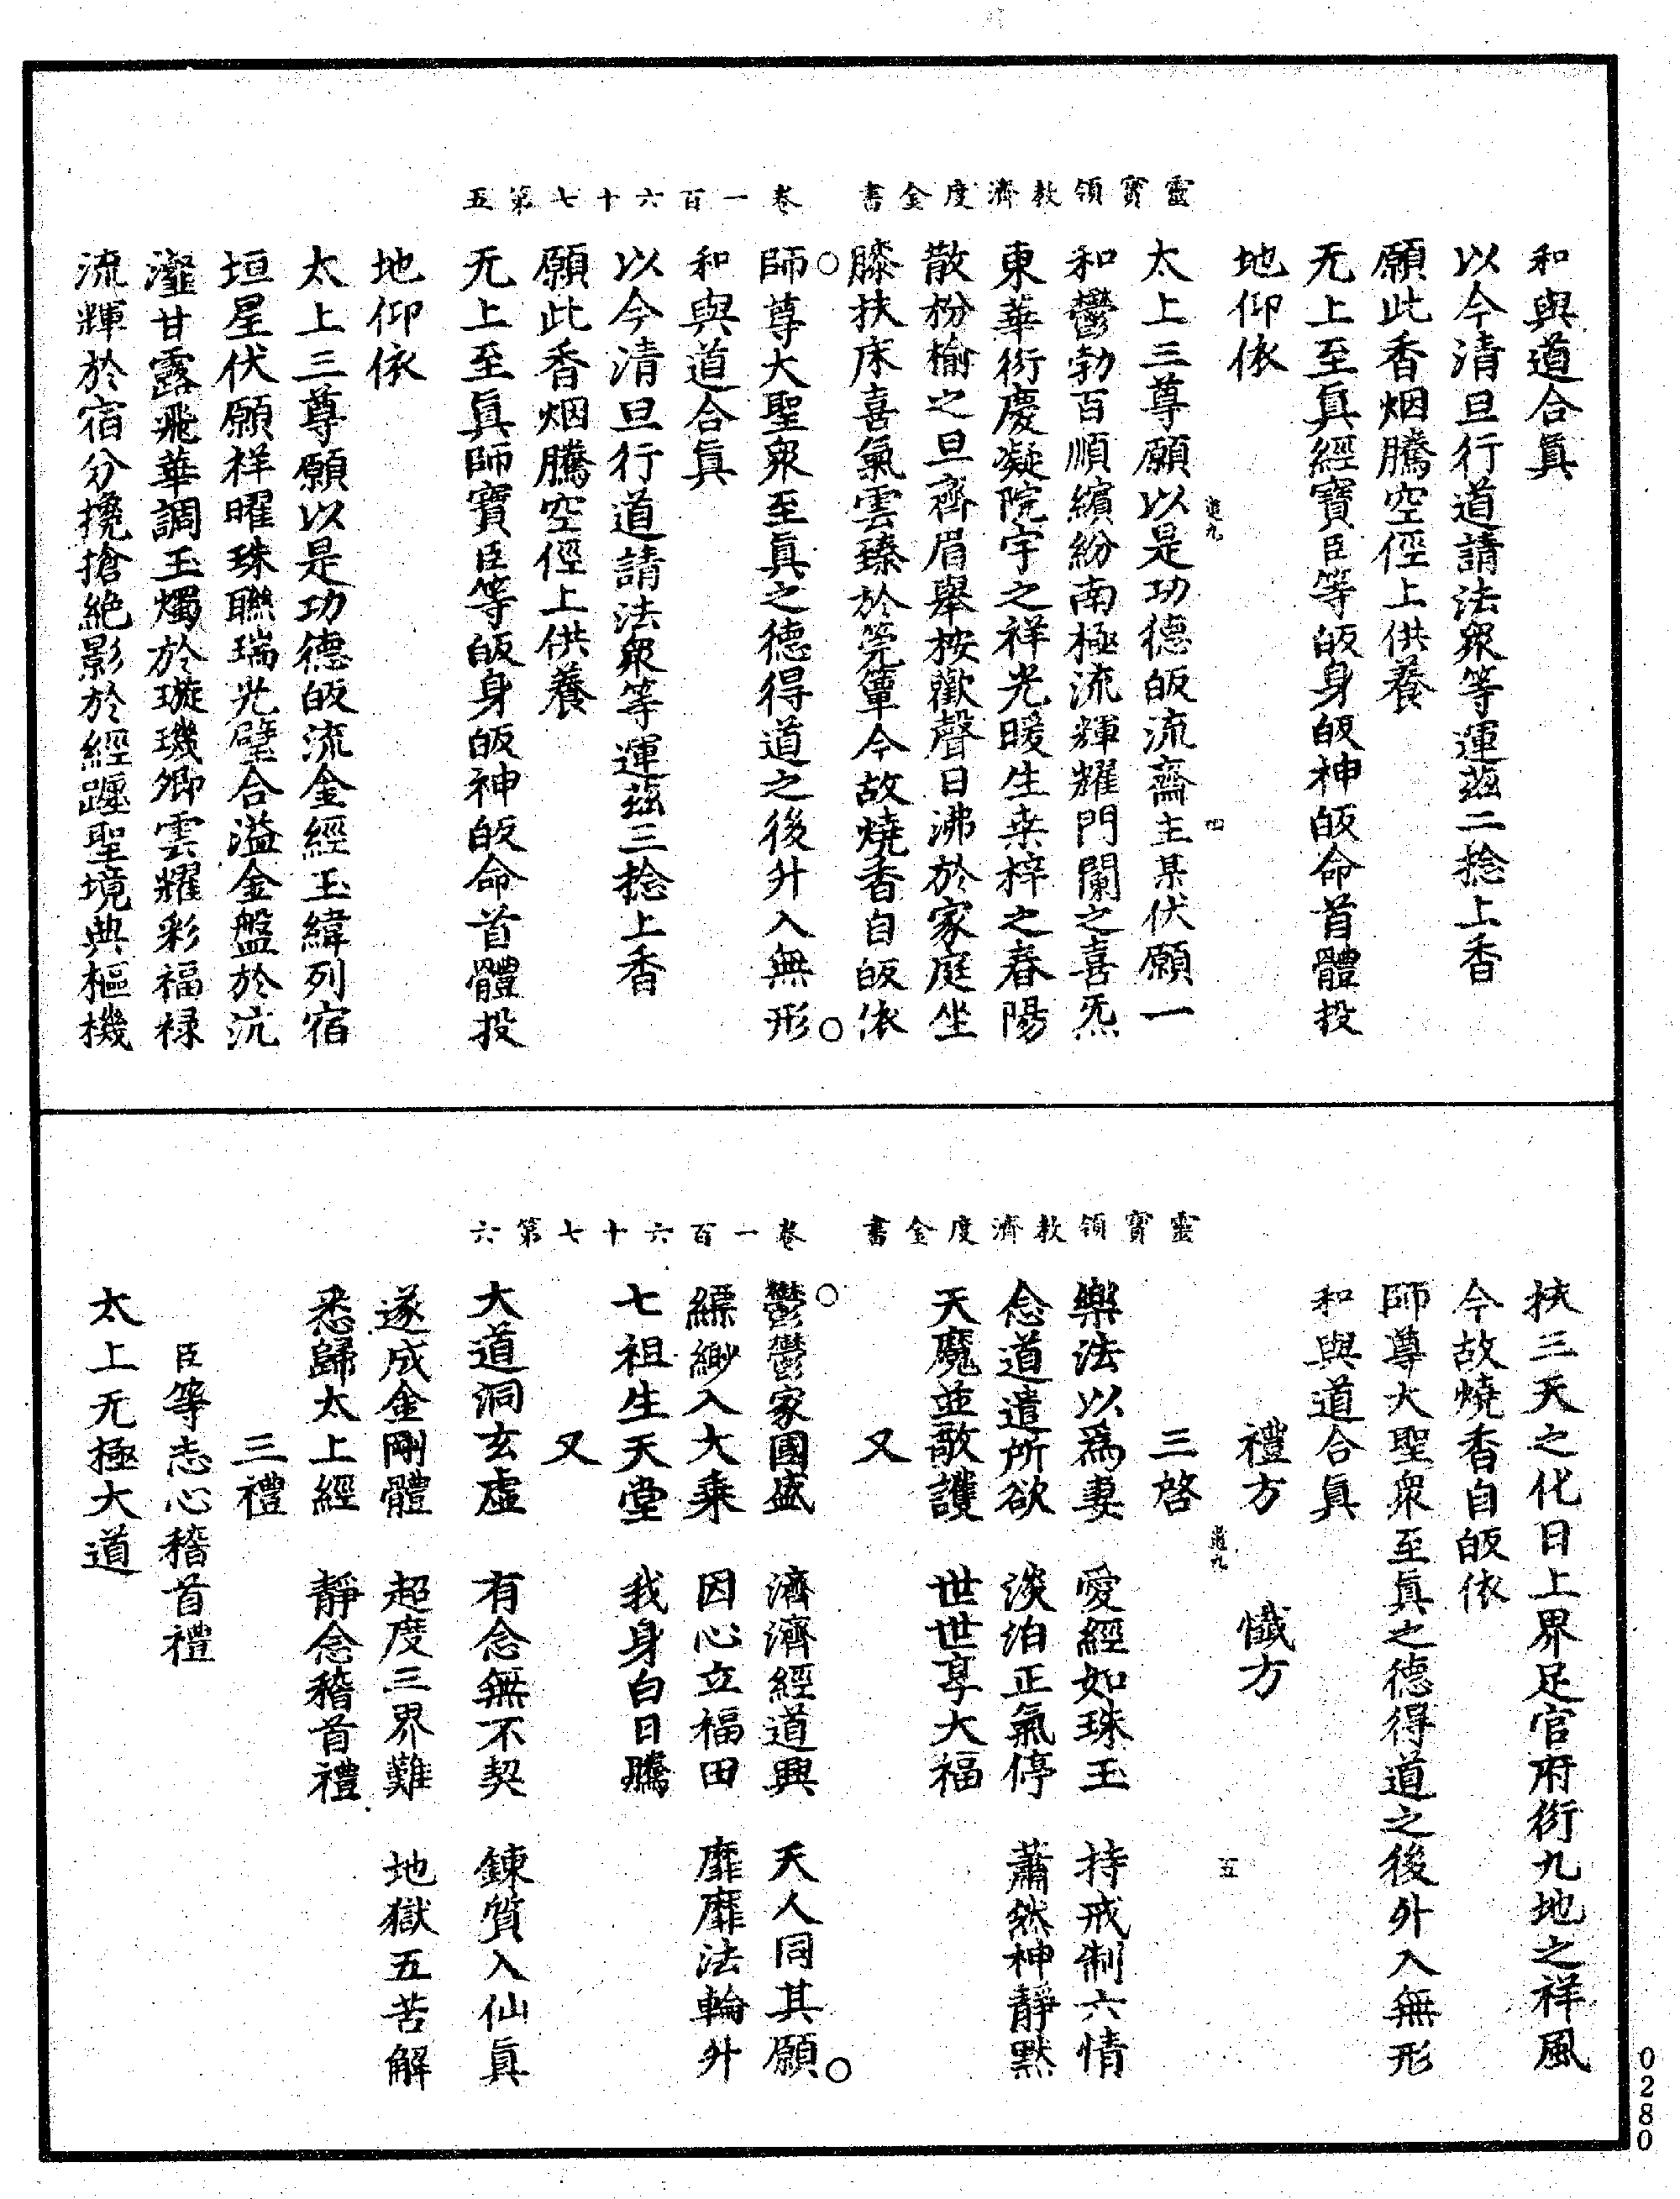 靈寶領教濟度金書　卷一百六十七第五
和與道合眞
以今清旦行道請法衆等運茲二捻上香
願此香烟騰空徑上供養
无上至眞經寶臣等皈身皈神皈命首體投
地仰依
太上三尊願以是功德皈流齋主某伏願一
和鬱勃百順繽紛南極流輝耀門闌之喜炁
東華衍慶凝院宇之祥光暖生桒梓之春陽
散枌榆之旦齊眉舉按歡聲日沸於家庭坐
膝扶床喜氣雲臻於筦簟今故燒香自皈依
師尊大聖衆至眞之德得道之後升入無形
和與道合眞
以今清旦行道請法衆等運茲三捻上香
願此香烟騰空徑上供養
无上至眞師寶臣等皈身皈神皈命首體投
地仰依
太上三尊願以是功德皈流金經玉緯列宿
垣星伏願祥曜珠聯瑞光璧合溢金盤於沆
瀣甘露飛華調玉燭於璇璣卿雲耀彩福祿
流輝於宿分攙搶絶影於經躔聖境典樞機
道九　四
靈寶領教濟度金書　卷一百六十七第六
扶三天之化日上界足官府衍九地之祥風
今故燒香自皈依
師尊大聖衆至眞之德得道之後升入無形
和與道合眞
禮方　懺方
三啓
樂法以爲妻　愛經如珠玉　持戒制六情
念道遣所欲　淡泊正氣停　蕭然神靜默
天魔並敬護　世世享大福
又
鬱鬱家國盛　濟濟經道興　天人同其願
縹緲入大乘　因心立福田　靡靡法輪升
七祖生天堂　我身白日騰
又
大道洞玄虛　有念無不契　鍊質入仙眞
遂成金剛體　超度三界難　地獄五苦解
悉歸太上經　靜念稽首禮
三禮
臣等志心稽首禮
太上无極大道
道九　五
0280